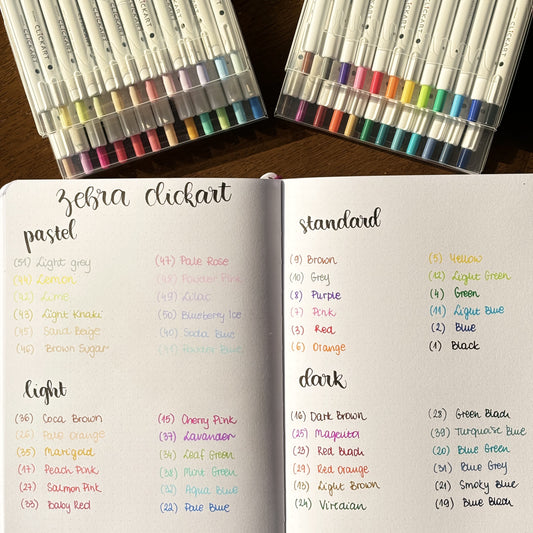 CLICKART
zebra clickart
pastel
(51) Light grey
(44) Lemon
(42) Lime
(43) Light Khaki
(45) Sand Beige
(46) Brown Sugar
(47) Pale Rose
(48) Powder Pink
(49) Lilac
(50) Blueberry Ice
(40) Soda Blue
(41) Powder Blue
light
(36) Coca Brown
(26) Pale Orange
(35) Marigold
(17) Peach Pink
(27) Salmon Pink
(33) Baby Red
(15) Cherry Pink
(37) Lavander
(34) Leaf Green
(38) Mint Green
(32) Aqua Blue
(22) Pale Blue
standard
(9) Brown
(10) Grey
(8) Purple
(7) Pink
(3) Red
(6) Orange
(5) Yellow
(12) Light Green
(4) Green
(11) Light Blue
(2) Blue
(1) Black
dark
(16) Dark Brown
(25) Magenta
(23) Red Black
(29) Red Orange
(13) Light Brown
(24) Viredian
(28) Green Black
(39) Turquoise Blue
(20) Blue Green
(31) Blue Grey
(21) Smoky Blue
(19) Blue Black